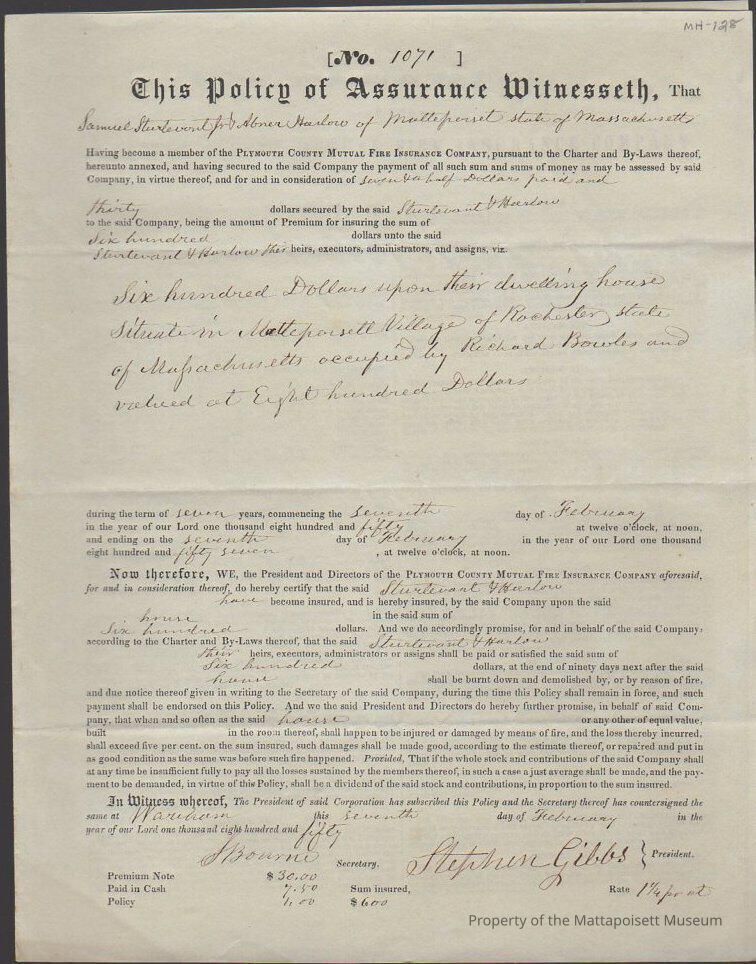 MH-128
[No. 1071 ]
This Policy of Assurance Witnesseth, That
Samuel Sturtevant Jr & Abner Harlow of Mattepoiset state of Massachusetts
Having become a member of the Plymouth County Mutual Fire Insurance Company, pursuant to the Charter and By-Laws thereof,
hereunto annexed, and having secured to the said Company the payment of all such sum and sums of money as may be assessed by said
Company, in virtue thereof, and for and in consideration of seven & a half Dollars paid and
thirty dollars secured by the said Sturtevant & Harlow
to the said Company, being the amount of Premium for insuring the sum of
Six hundred dollars unto the said
Sturtevant & Harlow their heirs, executors, administrators, and assigns, viz.
Six hundred Dollars upon their dwelling house
situate in Mattepoisett Village of Rochester state
of Massachusetts occupied by Richard Bowles and
valued at Eight hundred Dollars
during the term of seven years, commencing the seventh day of February
in the year of our Lord one thousand eight hundred and fifty at twelve o'clock, at noon,
and ending on the seventh day of February in the year of our Lord one thousand
eight hundred and fifty seven , at twelve o'clock, at noon.
Now therefore, WE, the President and Directors of the Plymouth County Mutual Fire Insurance Company aforesaid,
for and in consideration thereof, do hereby certify that the said Sturtevant & Harlow
have become insured, and is hereby insured, by the said Company upon the said
house in the said sum of
Six hundred dollars. And we do accordingly promise, for and in behalf of the said Company:
according to the Charter and By-Laws thereof, that the said Sturtevant & Harlow
their heirs, executors, administrators or assigns shall be paid or satisfied the said sum of
Six hundred dollars, at the end of ninety days next after the said
house shall be burnt down and demolished by, or by reason of fire,
and due notice thereof given in writing to the Secretary of the said Company, during the time this Policy shall remain in force, and such
payment shall be endorsed on this Policy. And we the said President and Directors do hereby further promise, in behalf of said Com-
pany, that when and so often as the said house or any other of equal value,
built in the room thereof, shall happen to be injured or damaged by means of fire, and the loss thereby incurred,
shall exceed five per cent. on the sum insured, such damages shall be made good, according to the estimate thereof, or repaired and put in
as good condition as the same was before such fire happened. Provided, That if the whole stock and contributions of the said Company shall
at any time be insufficient fully to pay all the losses sustained by the members thereof, in such a case a just average shall be made, and the pay-
ment to be demanded, in virtue of this Policy, shall be a dividend of the said stock and contributions, in proportion to the sum insured.
In Witness whereof, The President of said Corporation has subscribed this Policy and the Secretary thereof has countersigned the
same at Wareham this seventh day of February in the
year of our Lord one thousand eight hundred and fifty
S Bourne Secretary. Stephen Gibbs } President.
Premium Note $ 30.00
Paid in Cash 7.50 Sum insured, Rate 1 1/4 pr ct
Policy 1.00 $ 600
Property of the Mattapoisett Museum